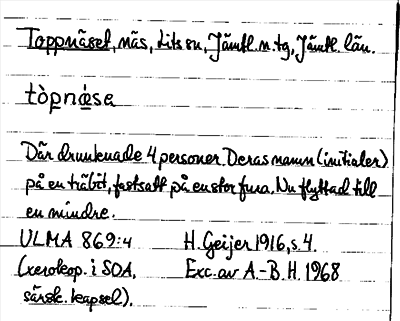 Toppnäset, näs, Lits sn, Jämtl. n. tg, Jämtl. län.
tòpnǽsɐ
Där drunknade 4 personer. Deras namn (initialer)
på en träbit, fastsatt på en stor fura. Nu flyttad till
en mindre.
ULMA 869:4 H. Geijer 1916, s. 4.
(xerokop. i SOA, Exc. av A.-B. H. 1968
särsk. kapsel).